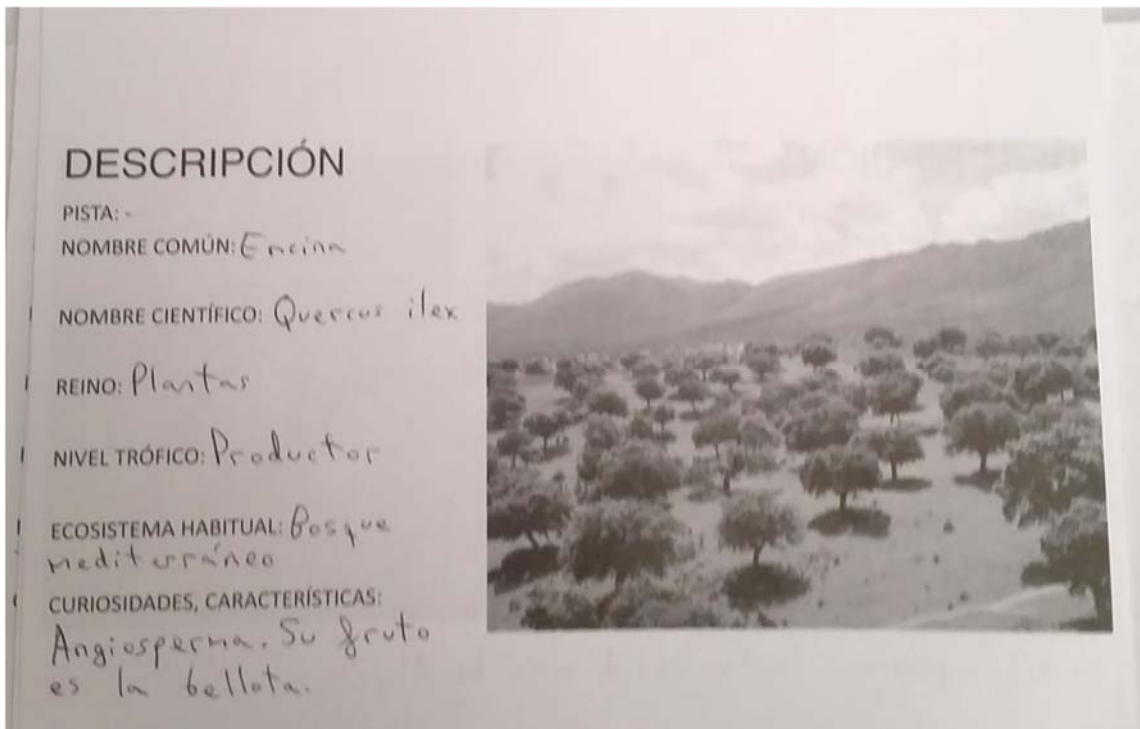 DESCRIPCIÓN
PISTA: -
NOMBRE COMÚN: Encina
NOMBRE CIENTÍFICO: Quercus ilex
REINO: Plantas
NIVEL TRÓFICO: Productor
ECOSISTEMA HABITUAL: Bosque
mediterráneo
CURIOSIDADES, CARACTERÍSTICAS:
Angiosperma. Su fruto
es la bellota.